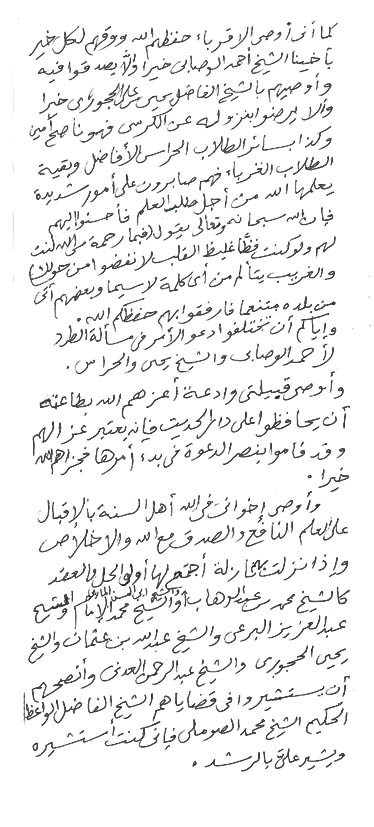 كما أني أوصي الأقرباء حفظهم الله ووفقهم لكل خير
بأخينا الشيخ أحمد الوصابي خيرا وألا يصدقوا فيه
وأوصيهم بالشيخ الفاضل يحيى بن علي الحجوري خيرا
وألا يرضوا بنزوله عن الكرسي فهو ناصح أمين
وكذا بسائر الطلاب الحراس الأفاضل وبقية
الطلاب الغرباء فهم صابرون على أمور شديدة
يعلمها الله من أجل طلب العلم فأحسنوا إليهم
فإن الله سبحانه وتعالى يقول فبما رحمة من الله لنت
لهم ولو كنت فظا غليظ القلب لانفضوا من حولك
والغريب يتألم من أي كلمة لا سيما وبعضهم أتى
من بلده متنعما فارفقوا بهم حفظكم الله.
وإياكم أن تختلفوا ادعوا الأمر في مسألة الطرد
لأحمد الوصابي والشيخ يحيى والحراس.
وأوصي قبيلتي وادعة أعزهم الله بطاعته
أن يحافظوا على دار الحديث فإنه يعتبر عزا لهم
وقد قاموا بنصر الدعوة في بدء أمرها فجزاهم الله
خيرا.
وأوصي إخواني في الله أهل السنة بالإقبال
على العلم النافع والصدق مع الله والإخلاص
وإذا نزلت بهم نازلة اجتمع لها أولو الحل والعقد
كالشيخ محمد بن عبدالوهاب والشيخ أبي الحسن المأربي والشيخ محمد الإمام والشيخ
عبدالعزيز البرعي والشيخ عبدالله بن عثمان والشيخ
يحيى الحجوري والشيخ عبدالرحمن العدني وأنصحهم
أن يستشيروا في قضاياهم الشيخ الفاضل الواعظ
الحكيم الشيخ محمد الصوملي فإني كنت أستشيره
ويشير علي بالرشد.